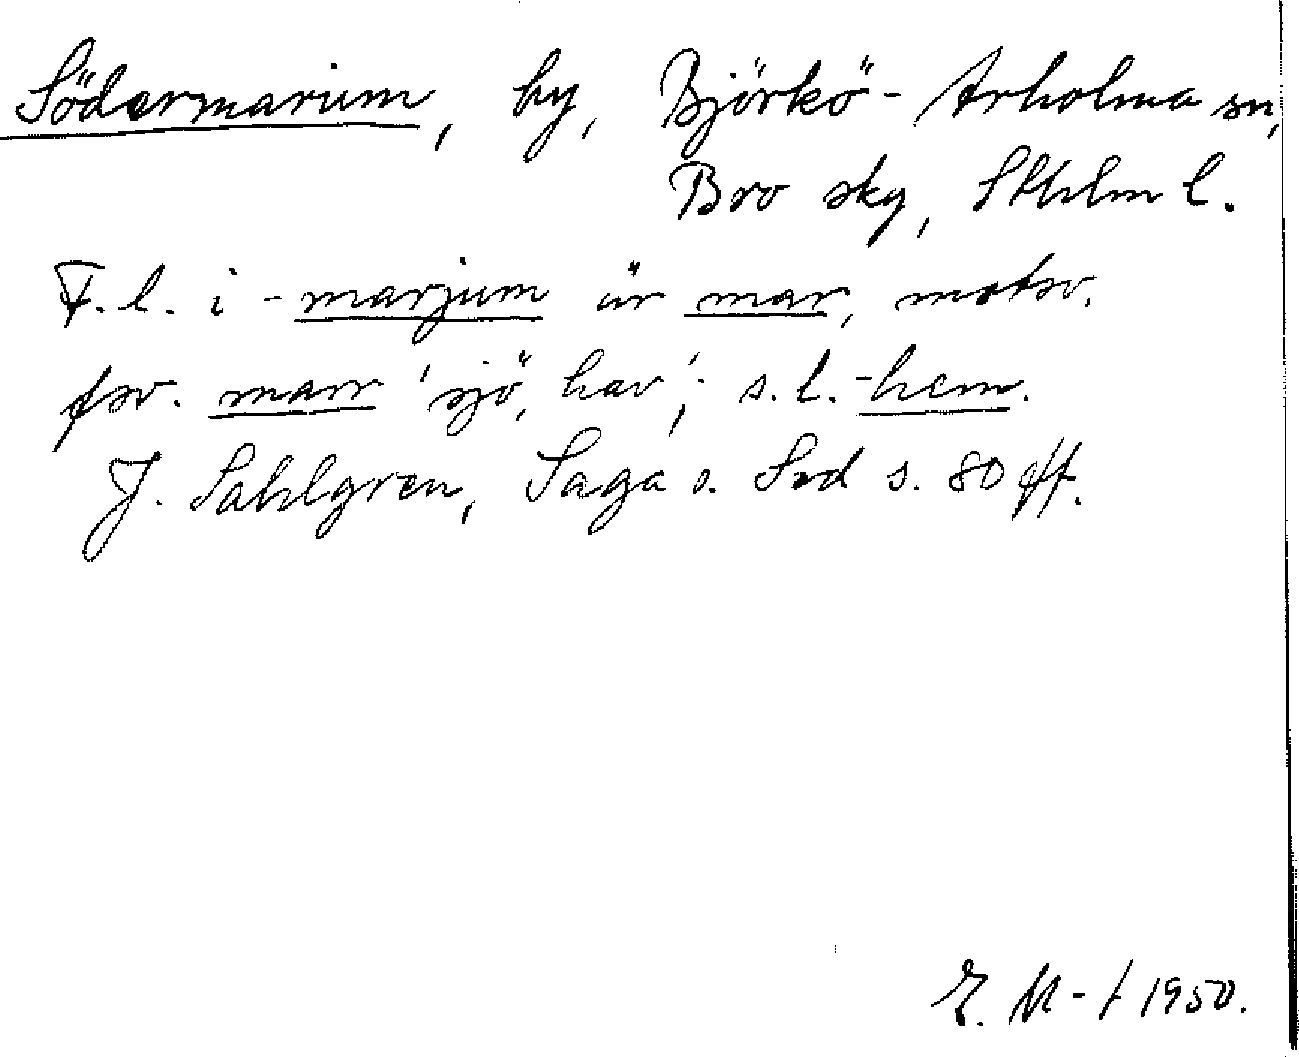 Södermarium, by, Björkö-Arholma sn,
Bro skg, Sthlm l.
F.l. i -marjum är mar, motsv.
fsv. marr 'sjö, hav'; s.l. -hem.
J. Sahlgren, Saga o. Sed s. 80 ff.
E. M-t 1950.